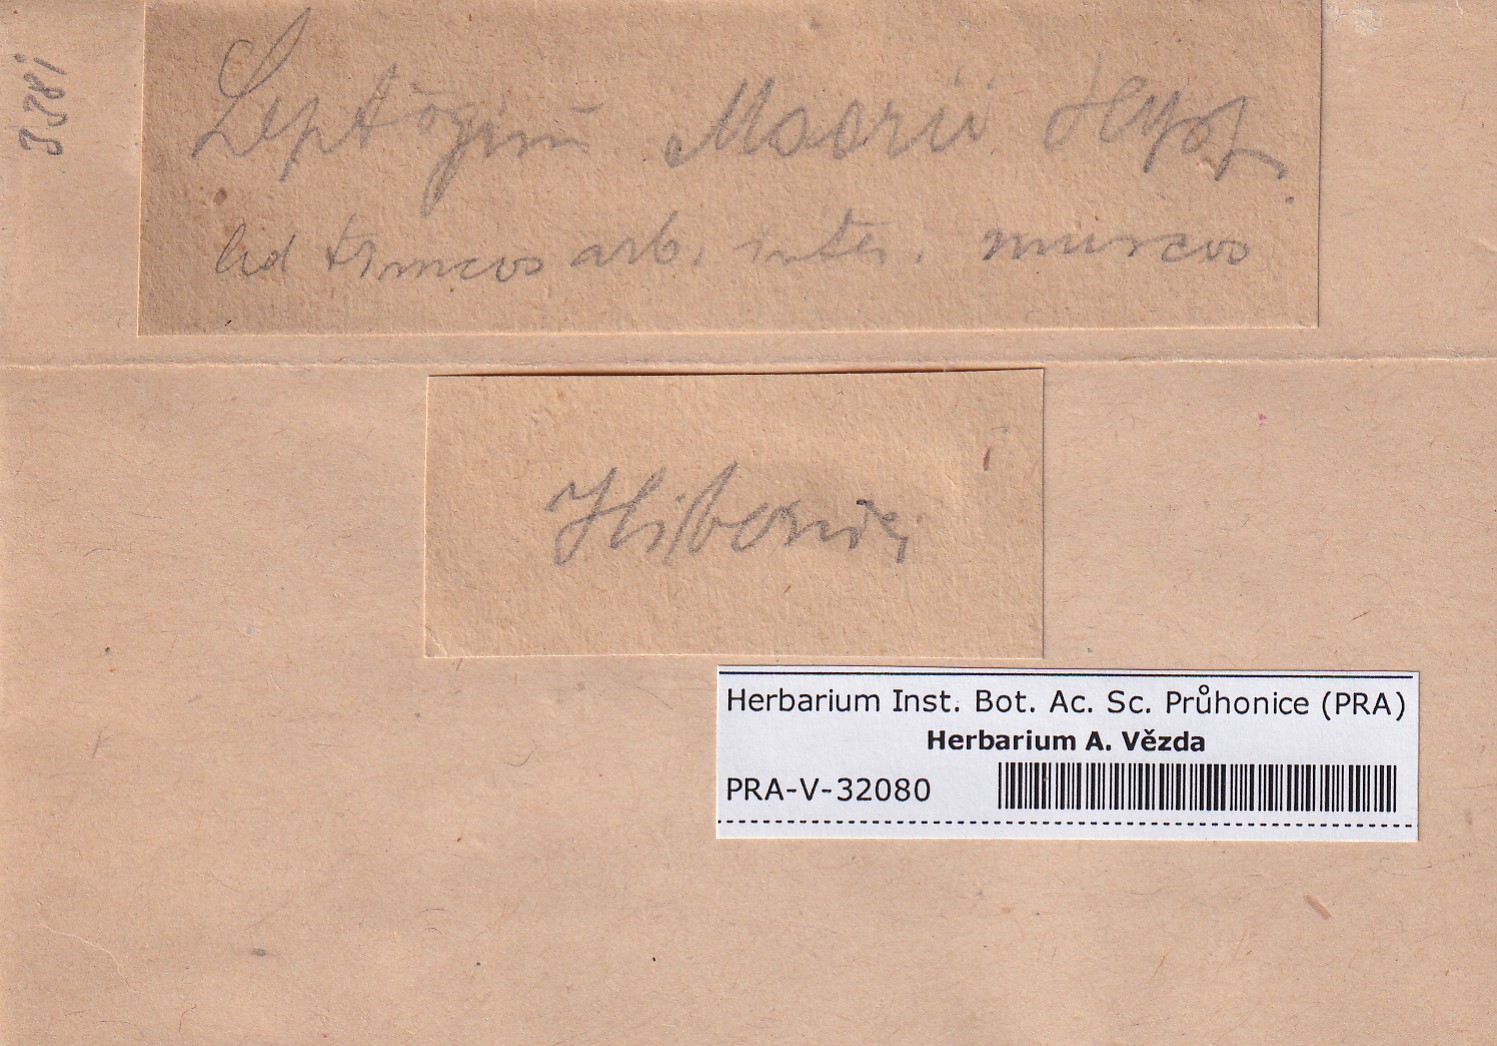 Leptogiū Moorii Hepp.
ad truncos arb. inter. muscos
Hibernia
Herbarium Inst. Bot. Ac. Sc. Průhonice (PRA)
Herbarium A. Vězda
PRA-V-32080